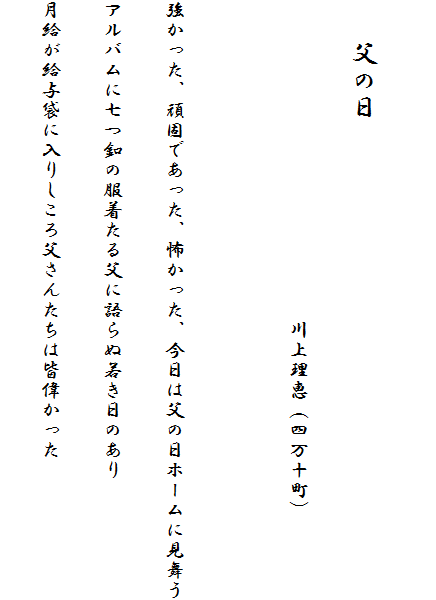 父の日
川上理恵（四万十町）
強かった、頑固であった、怖かった、今日は父の日ホームに見舞う
アルバムに七つ釦の服着たる父に語らぬ若き日のあり
月給が給与袋に入りしころ父さんたちは皆偉かった